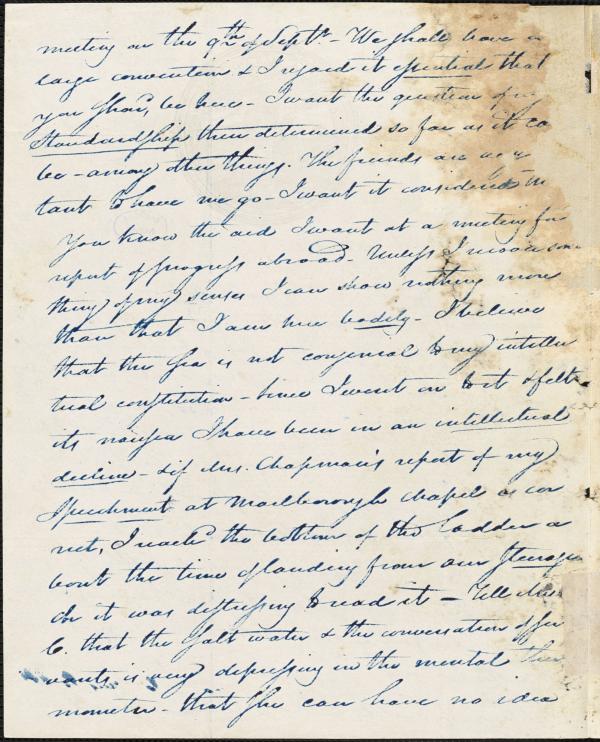 meeting on the 9th of Sept. - We shall have a
large convention & I regard it essential that
you shou'd be here - I want the question of my
Standardship then determined so far as it ca
be - among other things. The friends are
tant to have me go - I want it considered in
You know the aid I want at a meeting for
report of progress abroad - Unless I recover some
thing of my senses I can show nothing more
than that I am here bodily - I believe
that the sea is not congenial to my intellec
tual constitution - Since I went on to it & felt
its nausea I have been in an intellectual
decline - & if Mrs. Chapman's report of my
Speechment at Marlborough Chapel is cor
rect, I reached the bottom of the ladder a
bout the time of landing from our steerage
Oh it was distressing to read it - Tell Mrs
C. that the salt water & the conversation of ser
vants is very depressing on the mental ther
mometer - that she can have no idea